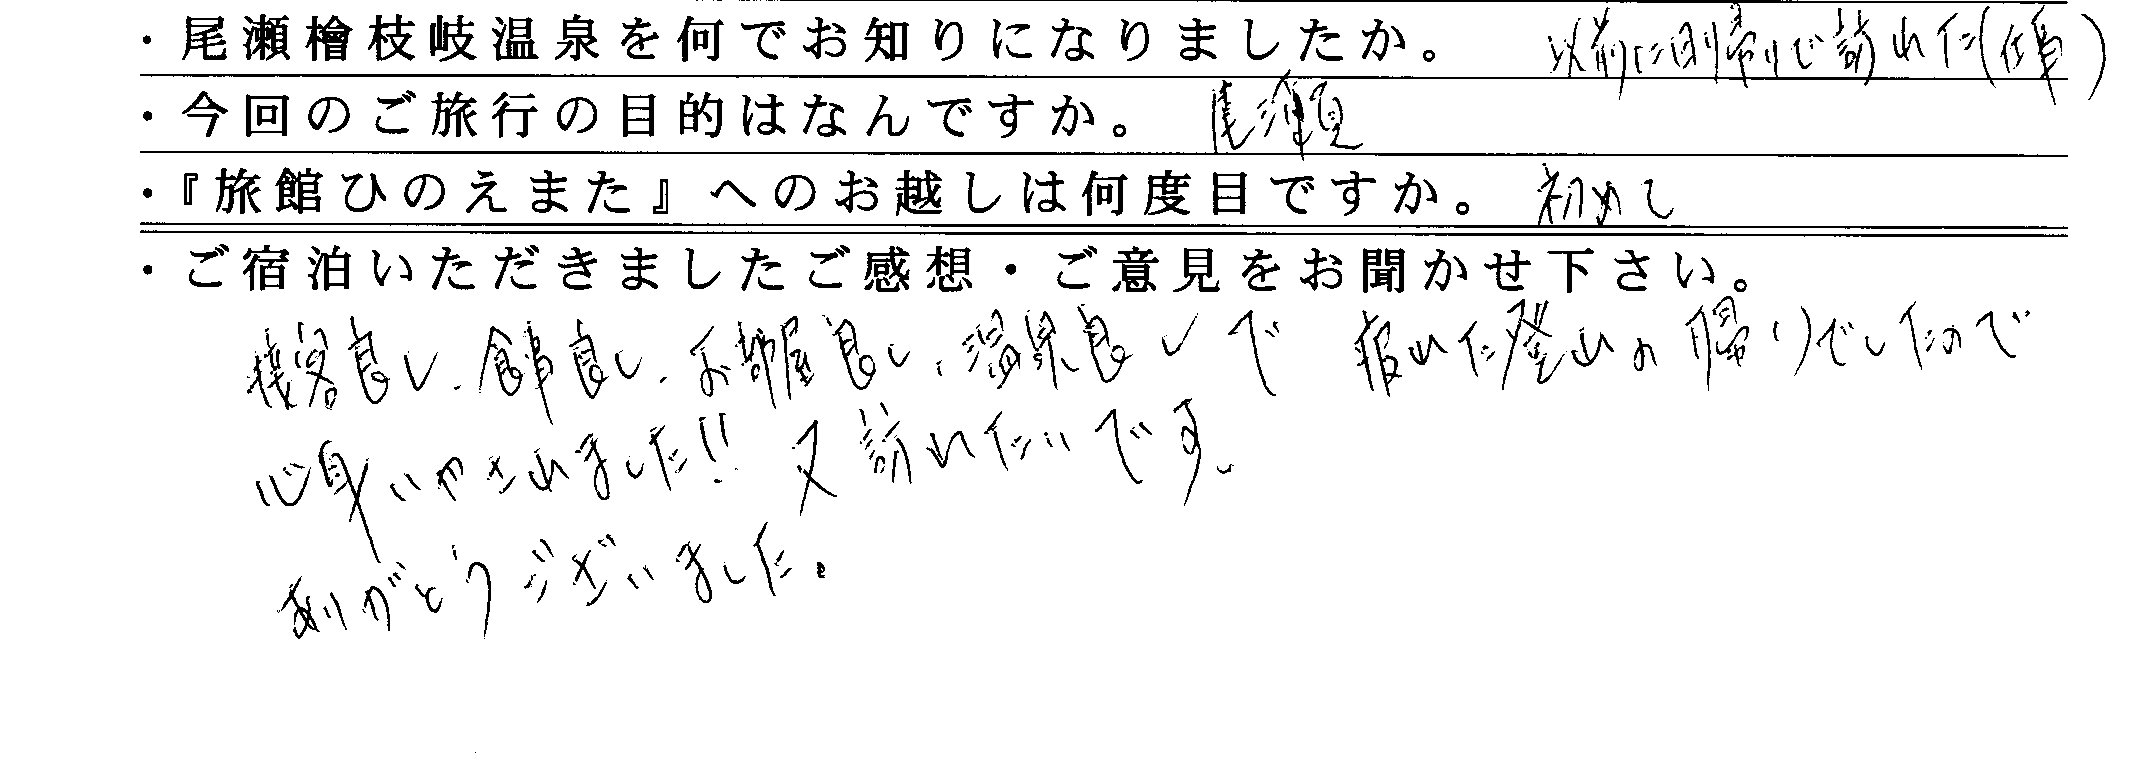 ・尾瀬檜枝岐温泉を何でお知りになりましたか。 以前に日帰りで訪れた(仕事)
・今回のご旅行の目的はなんですか。 尾瀬
・『旅館ひのえまた』へのお越しは何度目ですか。 初めて
・ご宿泊いただきましたご感想・ご意見をお聞かせ下さい。
接客良し、食事良し、お部屋良し、温泉良しで 疲れた登山の帰りでしたので
心身いやされました!! 又訪れたいです。
ありがとうございました。